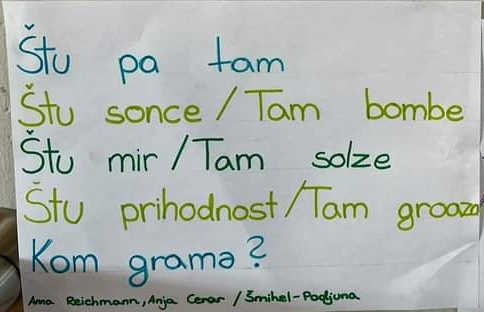 Štu pa tam
Štu sonce / Tam bombe
Štu mir / Tam solze
Štu prihodnost / Tam grooza
Kom gramə?
Ana Reichmann, Anja Cerar / Šmihel-Podjuna